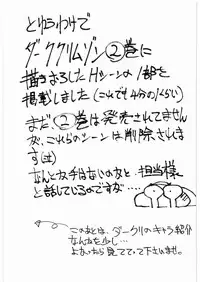 とゆうわけで
ダーククリムゾン②巻に
描きおろしたHシーンの1部を
掲載しました(これでも4分の1くらい)
まだ、②巻は発売されてません
が、これらのシーンは削除されま
す(注)
なんとか
はないのかなと 担当様
と話しているのですが…
このあとは、ダークリのキャラ紹介
なんかを少し…
よかったら見てって下さいませ。